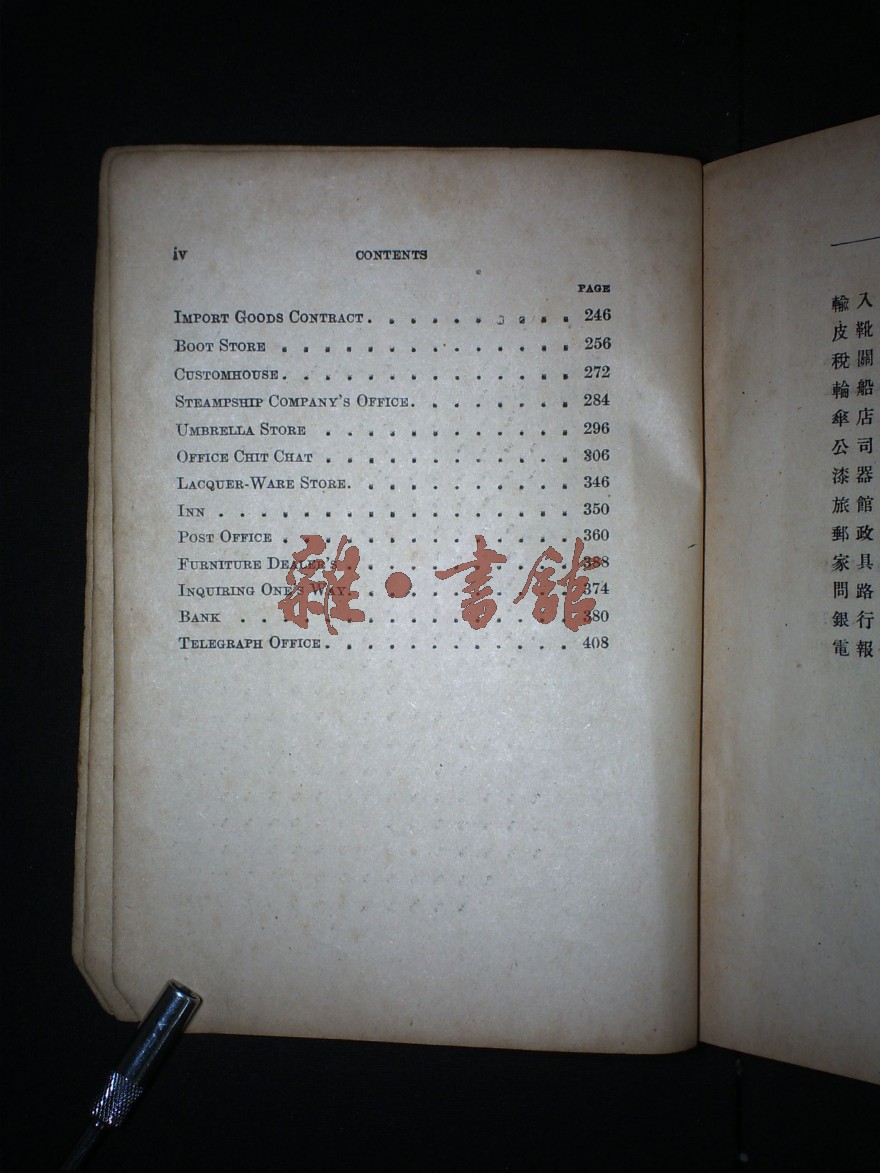 iv CONTENTS
PAGE
IMPORT GOODS CONTRACT . . . . . . . . . . 246
BOOT STORE . . . . . . . . . . . . . . 256
CUSTOMHOUSE . . . . . . . . . . . . . . 272
STEAMPSHIP COMPANY'S OFFICE . . . . . . . . 284
UMBRELLA STORE . . . . . . . . . . . . 296
OFFICE CHIT CHAT . . . . . . . . . . . . 306
LACQUER-WARE STORE . . . . . . . . . . . 346
INN . . . . . . . . . . . . . . . . . 350
POST OFFICE . . . . . . . . . . . . . . 360
FURNITURE DEALER'S . . . . . . . . . . . 388
INQUIRING ONE'S WAY . . . . . . . . . . . 374
BANK . . . . . . . . . . . . . . . . 380
TELEGRAPH OFFICE . . . . . . . . . . . . 408
雜·書館
輸入
皮靴
稅關
輪船
傘店
公司
漆器
旅館
郵政
家具
問路
銀行
電報